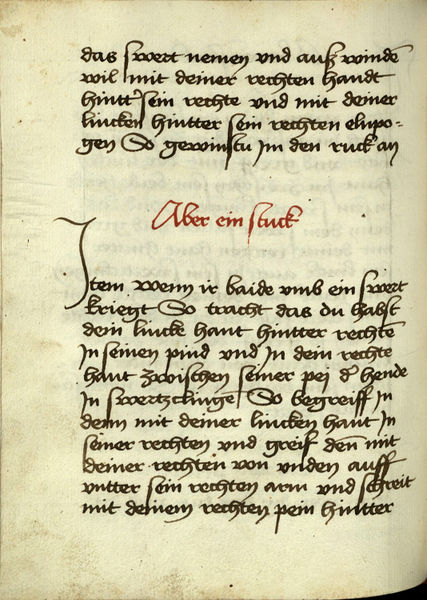 das swert nemen vnd auß windē
wil mit deiner rechten handt
hintt' sein rechte vnd mit deiner
lincken hintter sein rechten elnpo-
gen So gewinstu Im den ruck an
Aber ein stuck
Item wenn ir baide vmb ein swert
kriegt So tracht das du habst
dein lincke hant hintter rechtē
In seinen pind vnd In dein rechte
hant zwischen seiner pei d' hende
In swertzclinge So begreiff In
denn mit deiner lincken hant In
seiner rechten vnd greif den̄ mit
deiner rechten von vnden auff
vntter sein rechten arm vnd schreit
mit deinem rechten pein hintter